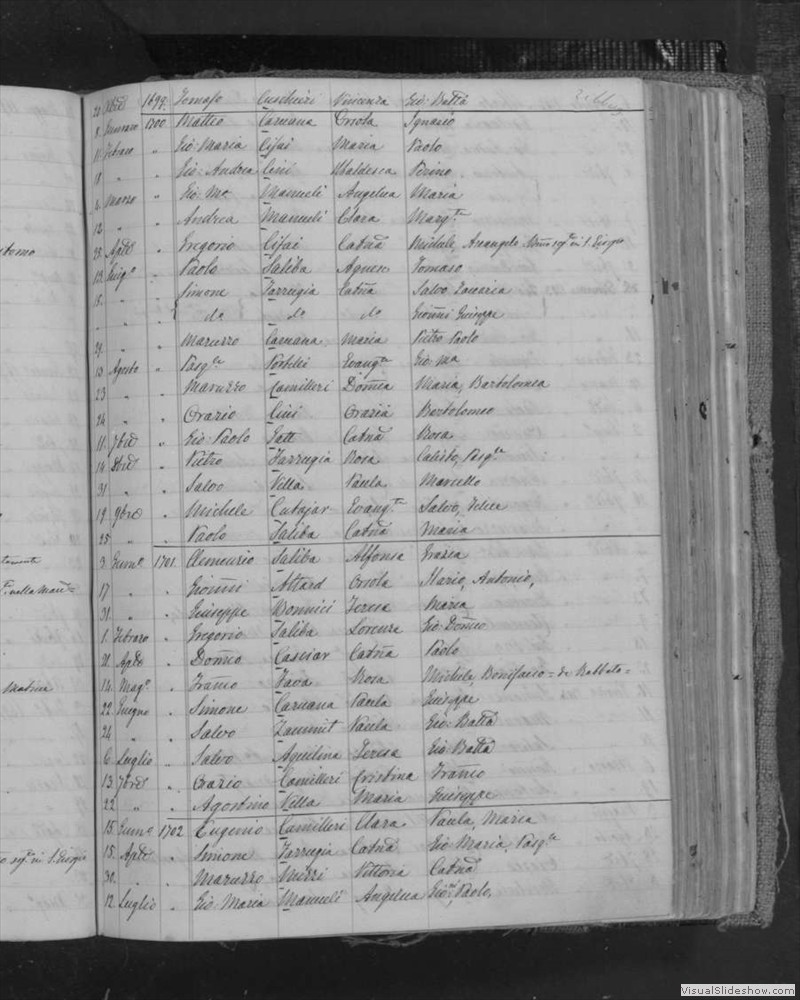 20 Xbre 1699 Tomaso Cuschieri Vincenza Gio: Batta
8 Gennaro 1700 Matteo Caruana Orsola Ignazio
11 Febraro " Gio: Maria Cifai Maria Paolo
18 " " Gio: Andrea Cini Ubaldesca Perino
4 Marzo " Gio: Ma Manueli Angelica Maria
12 " " Andrea Manueli Clara Marg.ta
25 Aple " Gregorio Cifai Catna Michele, Arcangelo
13 Giug.o " Paolo Saliba Agnese Tomaso
18 " " Simone Farrugia Catna Salvo
" " " do do do Gionni Giuseppe
29 " " Maruzzo Caruana Maria Pietro Paolo
13 Agosto " Pasq.le Portelli Evang.ta Gio: Ma
23 " " Maruzzo Camilleri Domca Maria, Bartolomea
24 " " Orazio Cini Grazia Bartolomeo
11 7bre " Gio: Paolo Gatt Catna Rosa
14 8bre " Pietro Farrugia Rosa Calisto, Pasq.le
31 " " Salvo Vella Paula Marcello
19 9bre " Michele Cutajar Evang.ta Salvo, Felice
25 " " Paolo Saliba Catna Maria
3 Genn.o 1701 Clemenzio Saliba Alfonsa Grazia
17 " " Gionni Attard Orsola Ilario, Antonio,
31 " " Giuseppe Bonnici Teresa Maria
1 Febraro " Gregorio Saliba Lorenza Gio: Domco
21 Aple " Domco Casciar Catna Paolo
14 Mag.o " Franco Fava Rosa Michele, Bonifacio = de Rabbato =
22 Giugno " Simone Caruana Paula Giuseppe
24 " " Salvo Zammit Paula Gio: Batta
6 Luglio " Salvo Aquilina Teresa Gio Batta
13 7bre " Orazio Camilleri Cristina Franco
22 " " Agostino Vella Maria Giuseppe
15 Genn.o 1702 Eugenio Camilleri Clara Paula, Maria
15 Aple " Simone Farrugia Catna Gio Maria, Pasq.le
30 " " Maruzzo Mizzi Vittoria Catna
12 Luglio " Gio: Maria Manueli Angelica Gio: Paolo,
VisualSlideshow.com